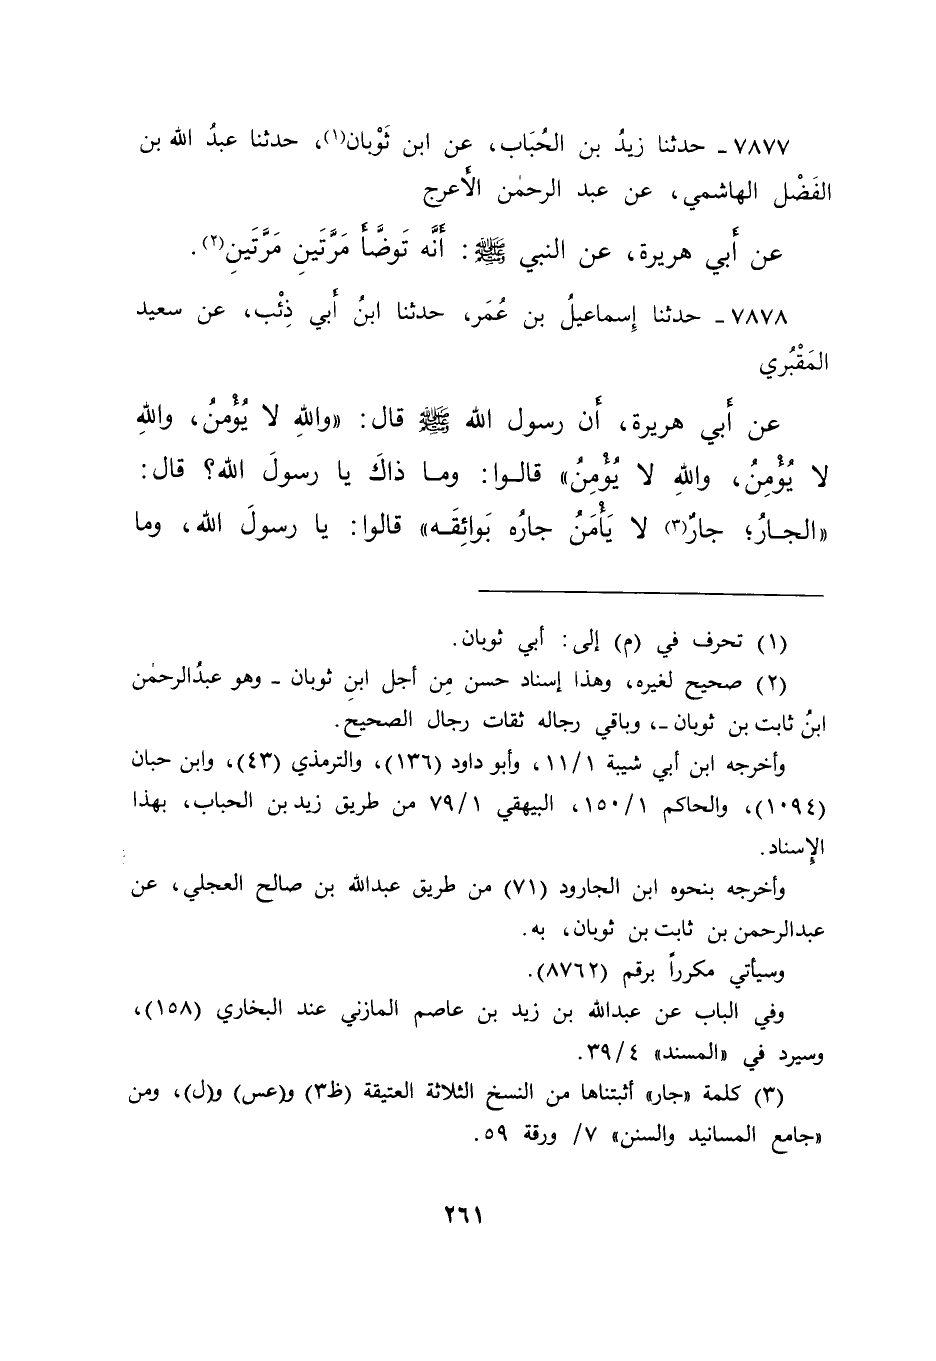 ٧٨٧٧ ـ حدثنا زيدُ بن الحُبَاب، عن ابن ثَوْبان(١)، حدثنا عبدُ الله بن
الفَضْل الهاشمي، عن عبد الرحمٰن الأَعرج
عن أَبي هريرة، عن النبي ﷺ: أَنَّه تَوضَّأَ مَرَّتَينِ مَرَّتَينِ(٢).
٧٨٧٨ ـ حدثنا إِسماعيلُ بن عُمَر، حدثنا ابنُ أَبي ذِئْب، عن سعيد
المَقْبُري
عن أَبي هريرة، أَن رسول الله ﷺ قال: «واللهِ لا يُؤْمنُ، واللهِ
لا يُؤْمِنُ، واللهِ لا يُؤْمِنُ» قالـوا: ومـا ذاكَ يا رسولَ الله؟ قال:
«الجـارُ؛ جارٌ(٣) لا يَأْمَنُ جارُه بَوائِقَـه» قالوا: يا رسولَ الله، وما
(١) تحرف في (م) إلى: أبي ثوبان.
(٢) صحيح لغيره، وهذا إسناد حسن مِن أجل ابنِ ثوبان ـ وهو عبدُالرحمٰن
ابنُ ثابت بن ثوبان ـ، وباقي رجاله ثقات رجال الصحيح.
وأخرجه ابن أبي شيبة ١١/١، وأبو داود (١٣٦)، والترمذي (٤٣)، وابن حبان
(١٠٩٤)، والحاكم ١٥٠/١، البيهقي ٧٩/١ من طريق زيد بن الحباب، بهذا
الإِسناد.
وأخرجه بنحوه ابن الجارود (٧١) من طريق عبدالله بن صالح العجلي، عن
عبدالرحمن بن ثابت بن ثوبان، به.
وسيأتي مكرراً برقم (٨٧٦٢).
وفي الباب عن عبدالله بن زيد بن عاصم المازني عند البخاري (١٥٨)،
وسيرد في «المسند» ٣٩/٤.
(٣) كلمة «جار» أثبتناها من النسخ الثلاثة العتيقة (ظ٣) و(عس) و(ل)، ومن
«جامع المسانيد والسنن» ٧/ ورقة ٥٩.
٢٦١